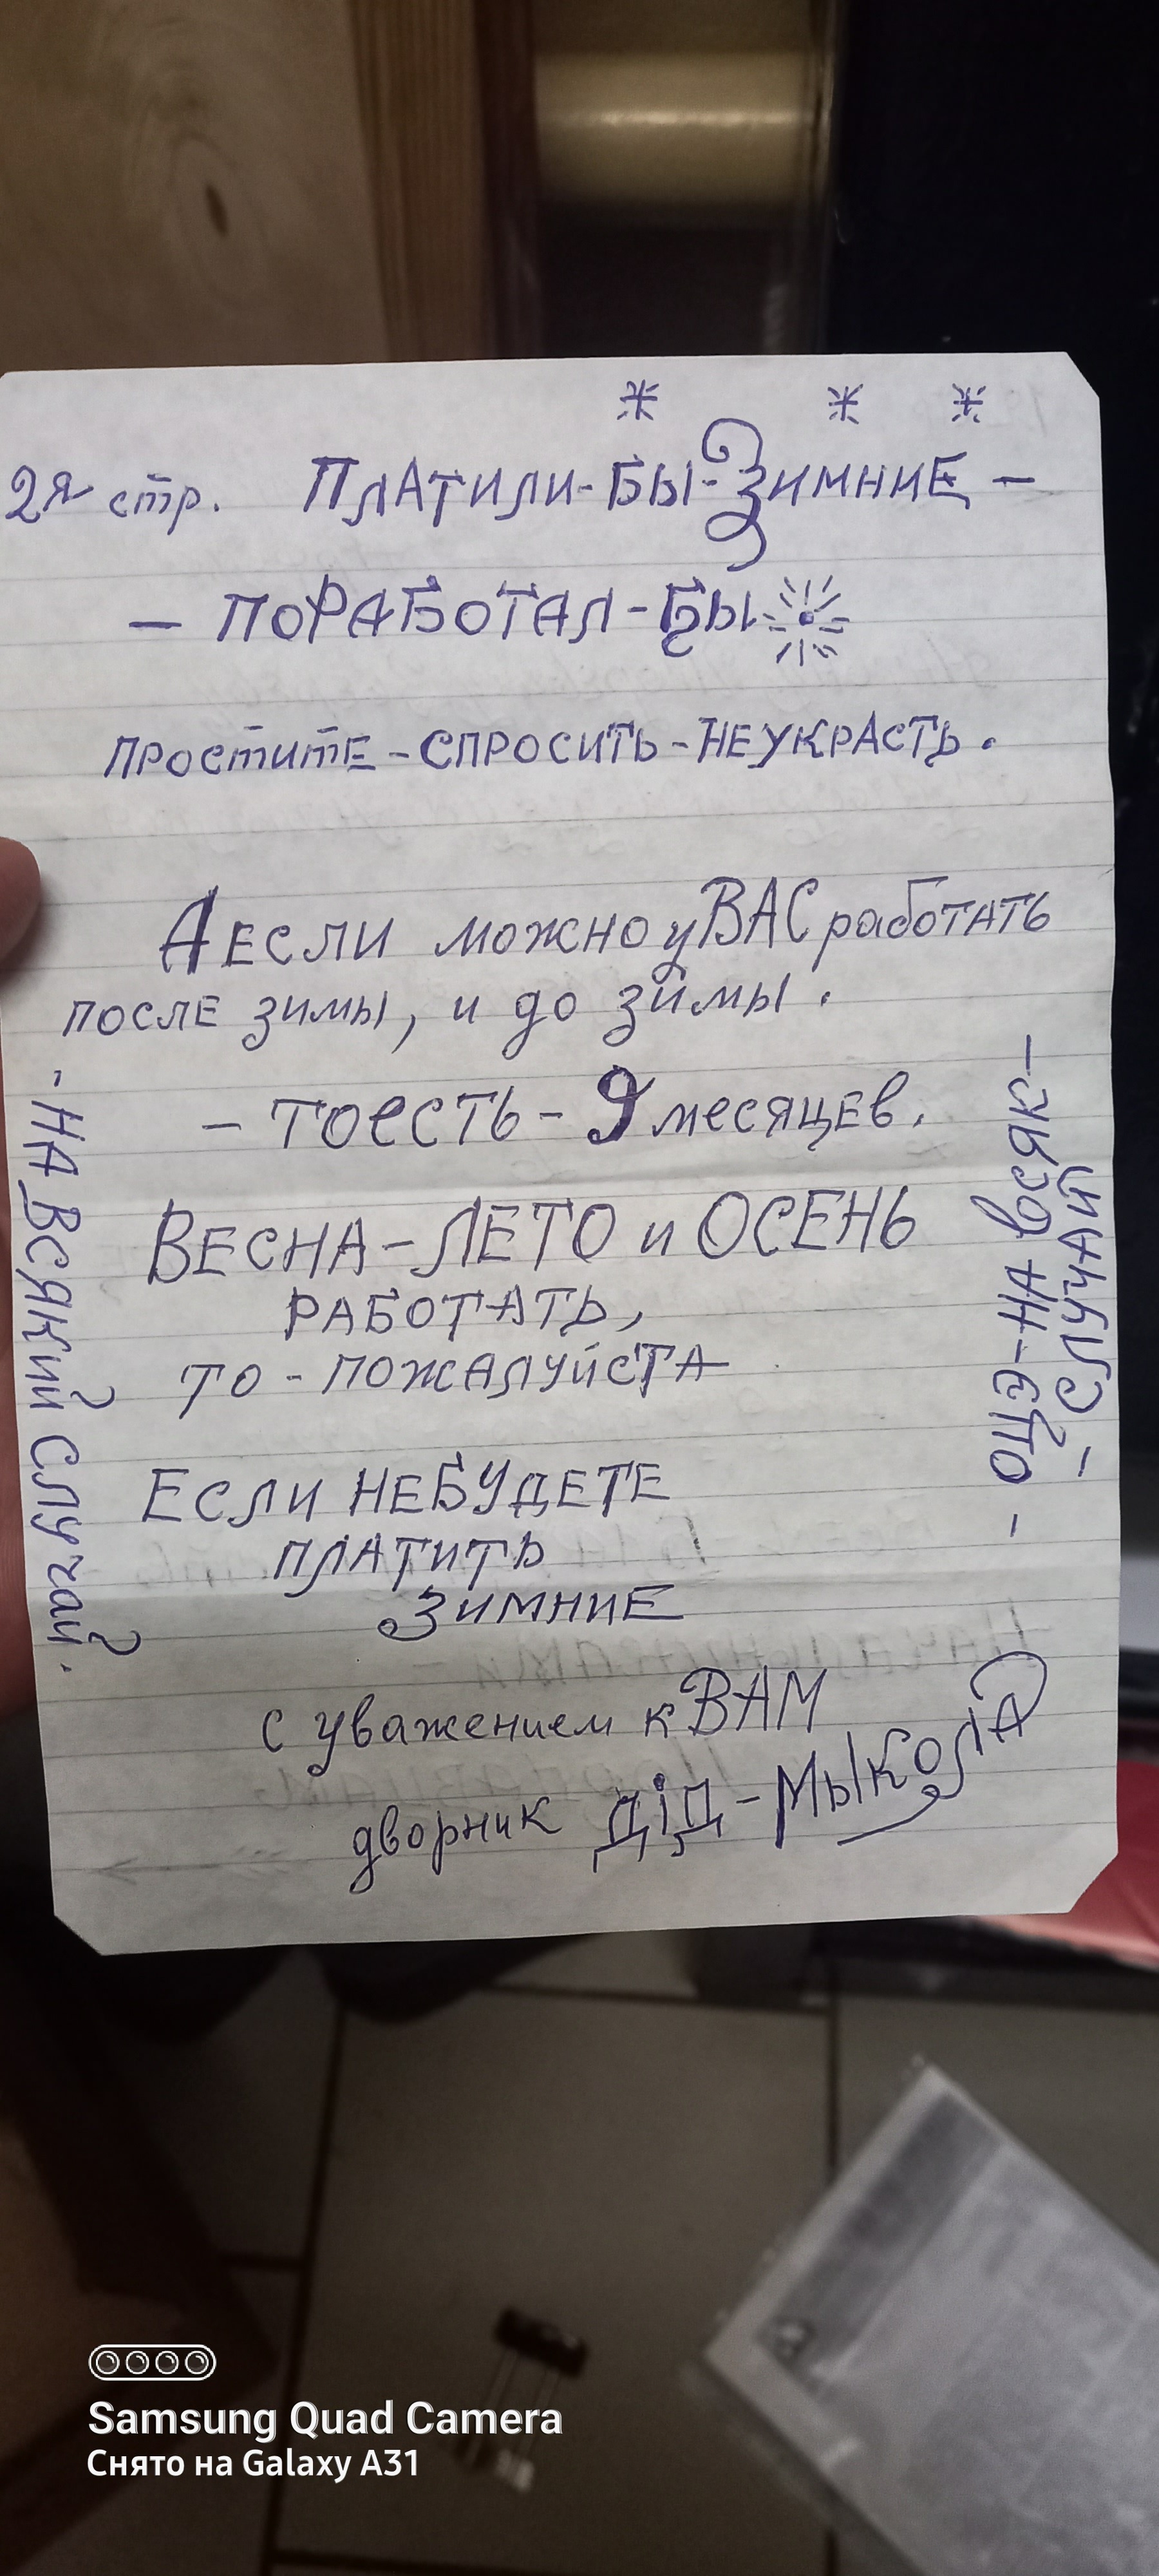 2я стр. ПЛАТИЛИ-БЫ-ЗИМНИЕ -
- ПОРАБОТАЛ-БЫ
ПРОСТИТЕ-СПРОСИТЬ-НЕУКРАСТЬ.
АЕСЛИ МОЖНО у ВАС работАТЬ
ПОСЛЕ ЗИМЫ, и до зимы.
- ТОЕСТЬ - 9 месяцев.
ВЕСНА-ЛЕТО и ОСЕНЬ
РАБОТАТЬ,
ТО - ПОЖАЛУЙСТА
ЕСЛИ НЕБУДЕТЕ
ПЛАТИТЬ
ЗИМНИЕ
с уважением к ВАМ
дворник ДІД-МЫКОЛА
-НА ВСЯКИЙ СЛУЧАЙ.
- ОЦЭ-НА ВСЯК-
- СЛУЧАЙ
Samsung Quad Camera
Снято на Galaxy A31